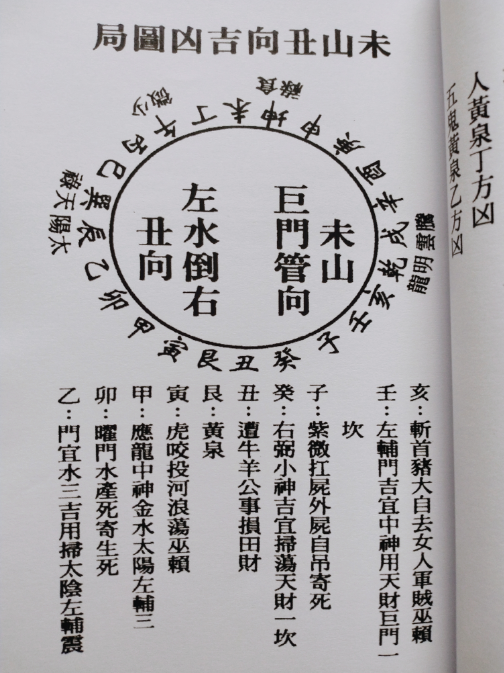 人黃泉丁方凶
五鬼黃泉乙方凶
未山丑向吉凶圖局
食祿
少微
太陽天祿
騰雲明龍
壬亥乾戌辛酉庚申坤未丁午丙巳巽辰乙卯甲寅艮丑癸子
未山
巨門管向
左水倒右
丑向
亥：斬首豬大自去女人軍賊巫賴
壬：左輔門吉宜中神用天財巨門一
坎
子：紫微扛屍外屍自吊寄死
癸：右弼小神吉宜掃蕩天財一坎
丑：遭牛羊公事損田財
艮：黃泉
寅：虎咬投河浪蕩巫賴
甲：應龍中神金水太陽左輔三
卯：曜門水產死寄生死
乙：門宜水三吉用掃太陰左輔震